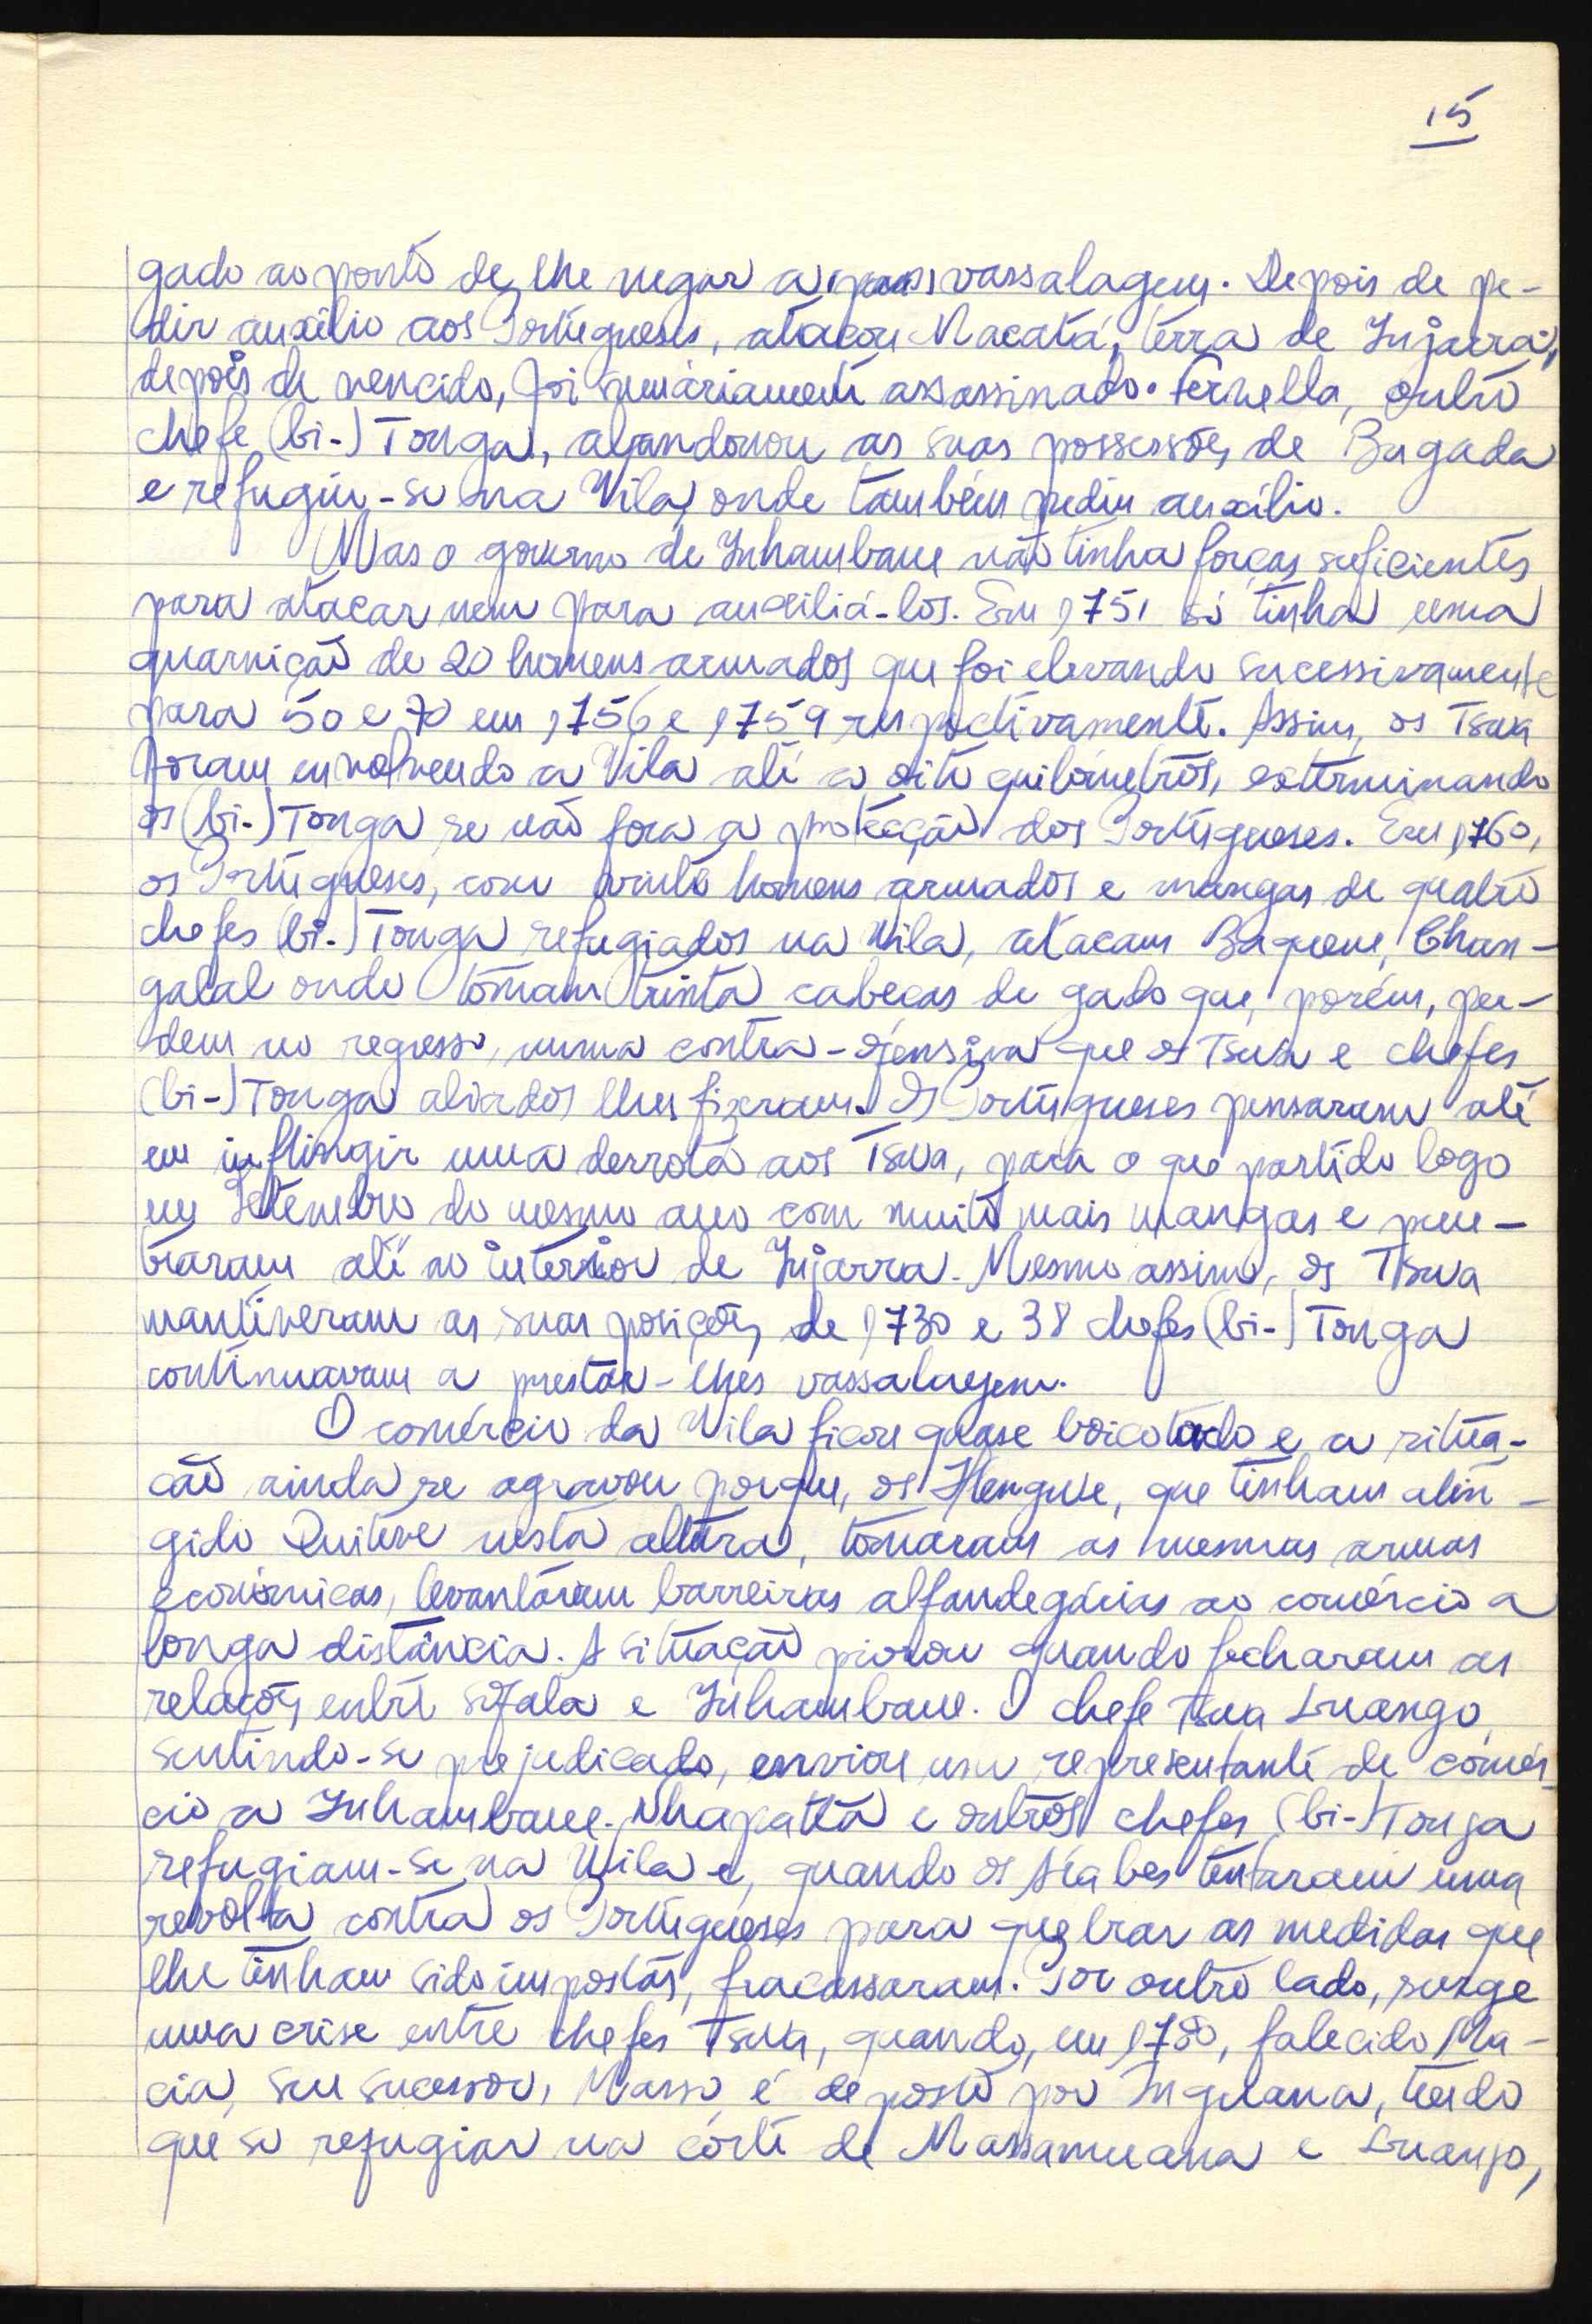 15
gado ao ponto de lhe negar a vassalagem. Depois de pe-
dir auxílio aos Portugueses, atacou Macatá, terra de Injarra,
depois de vencido, foi sumáriamente assassinado. Fernella, outro
chefe (bi-) Tonga, abandonou as suas possessões de Bagada
e refugiu-se na Vila, onde também pediu auxílio.
Mas o governo de Inhambane não tinha forças suficientes
para atacar nem para auxiliá-los. Em 1751 só tinha uma
guarnição de 20 homens armados que foi elevando sucessivamente
para 50 e 70 em 1756 e 1759 respectivamente. Assim, os Tswa
foram envolvendo a Vila até a oito quilómetros, exterminando
os (bi-) Tonga se não fora a protecção dos Portugueses. Em 1760,
os Portugueses, com vinte homens armados e mangas de quatro
chefes (bi-) Tonga refugiados na Vila, atacam Baquene, Chan-
gatal onde tomam trinta cabeças de gado que, porém, per-
dem no regresso, numa contra-ofensiva que os Tswa e chefes
(bi-) Tonga aliados lhes fizeram. Os Portugueses pensaram até
em inflingir uma derrota aos Tswa, para o que partido logo
em Setembro do mesmo ano com muito mais mangas e pene-
traram até no interior de Injarra. Mesmo assim, os Tswa
mantiveram as suas posições de 1730 e 38 chefes (bi-) Tonga
continuavam a prestar-lhes vassalagem.
O comércio da Vila ficou quase boicotado e a situa-
ção ainda se agravou porque, os Hlengwe, que tinham atin-
gido Quiteve nesta altura, tomaram as mesmas armas
económicas, levantaram barreiras alfandegárias ao comércio a
longa distância. A situação piorou quando fecharam as
relações entre Sofala e Inhambane. O chefe Tswa Luango,
sentindo-se prejudicado, enviou um representante de comér-
cio a Inhambane. Nhapatta e outros chefes (bi-) Tonga
refugiam-se na Vila e, quando os Árabes tentaram uma
revolta contra os Portugueses para quebrar as medidas que
lhe tinham sido impostas, fracassaram. Por outro lado, surge
uma crise entre chefes Tswa, quando, em 1780, falecido Ma-
cia, seu sucessor, Masso, é deposto por Inguana, tendo
que se refugiar na côrte de Massamuana e Luango,